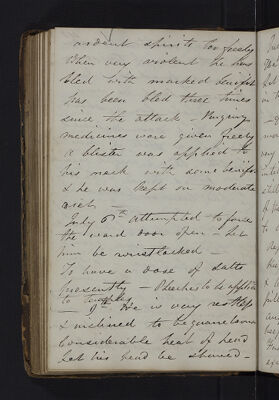 ardent spirits too freely
When very violent he was
bled with marked benefit
has been bled three times
since the attack - Purging
medicines were given freely
a blister was applied to
his neck with some benefit
& he was kept on moderate
diet -
July 6th attempted to force
the ward door open - let
him be wristlocked -
To have a dose of salts
presently - Leeches to be applied
to temples
- 9th He is very restless
& inclined to be quarrelsome
Considerable heat of head
Let his head be shaved -